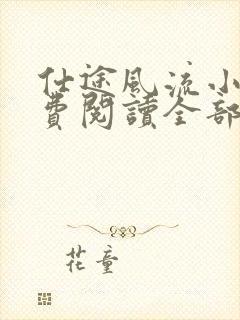 仕途風流小
費閱讀全部
花童